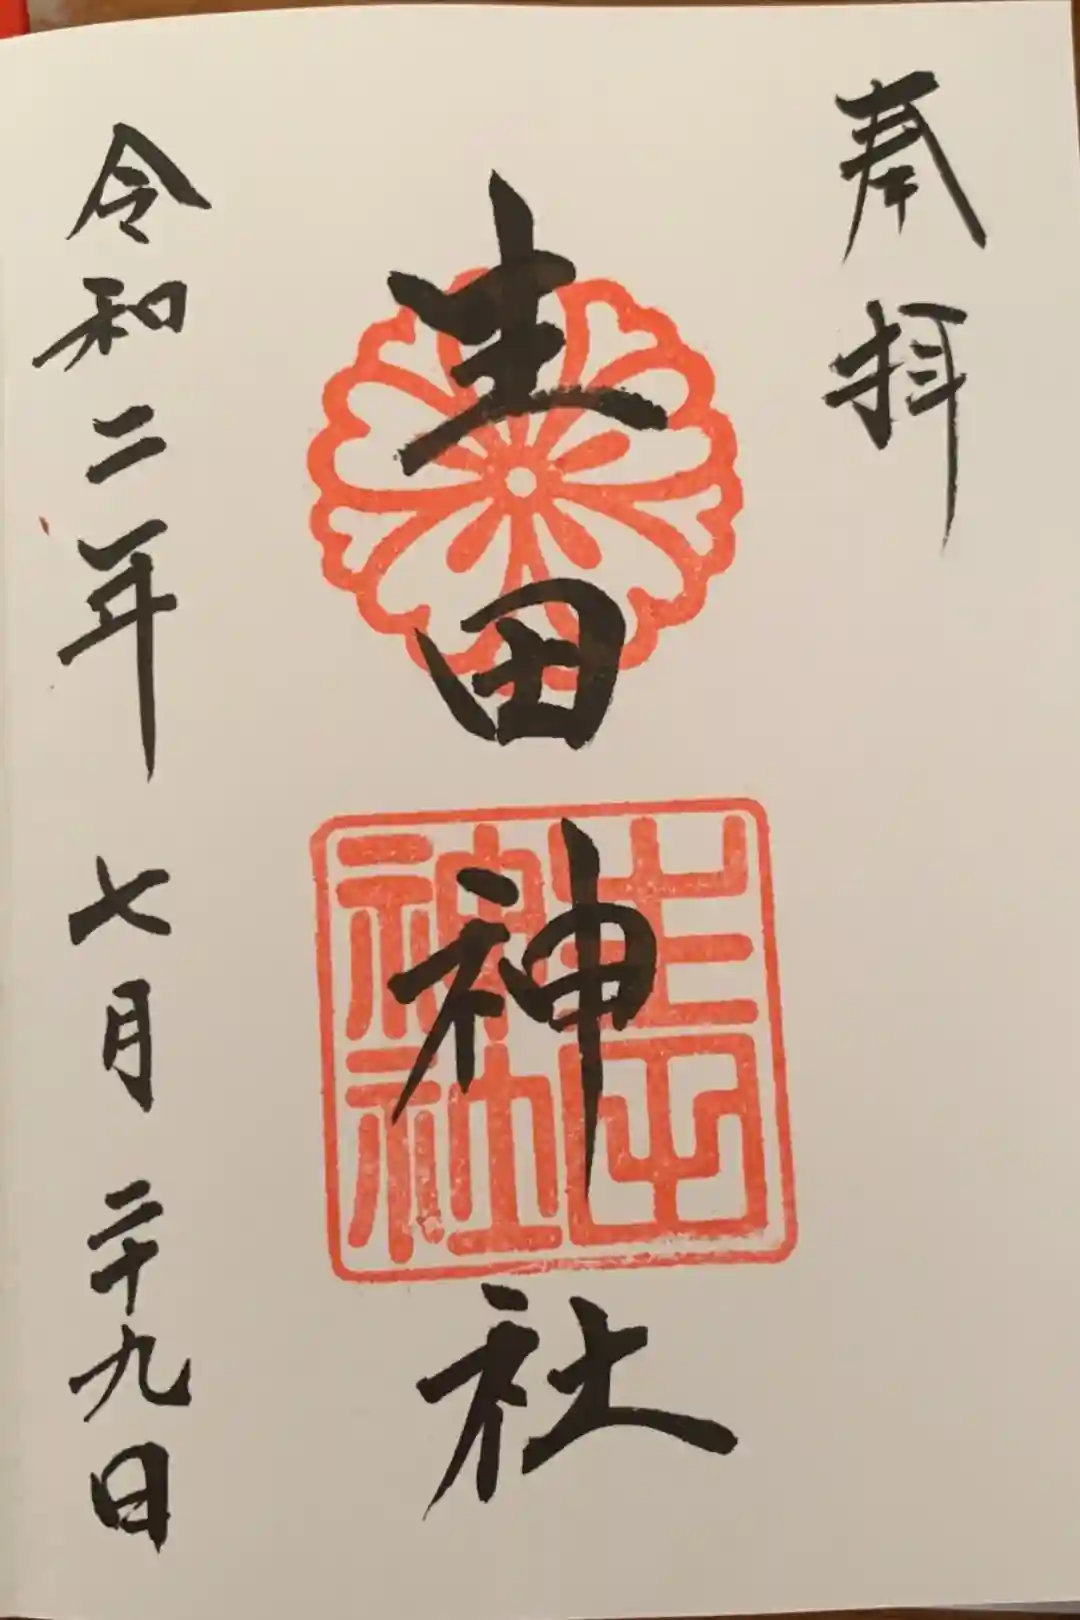 奉拝
生田神社
生田神社
令和二年 七月 二十九日